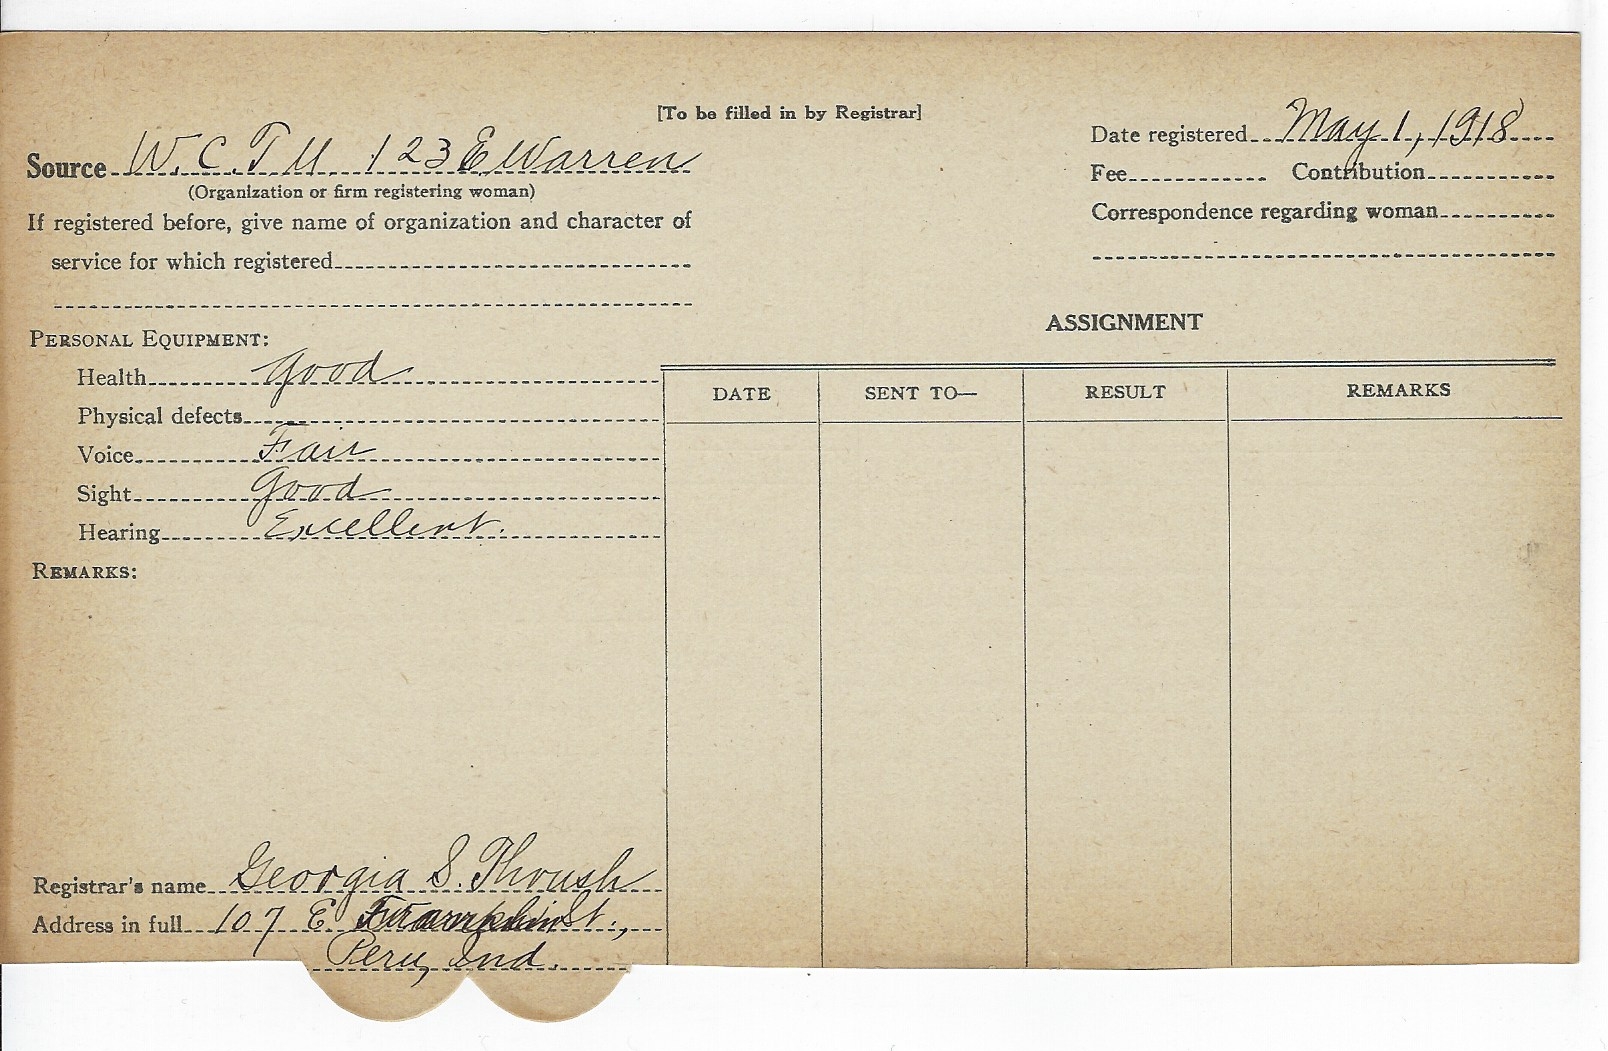 [To be filled in by Registrar]
Source W. C. T. U. 123 E Warren
(Organization or firm registering woman)
If registered before, give name of organization and character of
service for which registered
Date registered May 1, 1918
Fee Contribution
Correspondence regarding woman
PERSONAL EQUIPMENT:
Health good
Physical defects
Voice Fair
Sight good
Hearing Excellent.
REMARKS:
ASSIGNMENT
DATE SENT TO— RESULT REMARKS
Registrar's name Georgia S. Thrush
Address in full 107 E Franklin St.,
Peru, Ind.